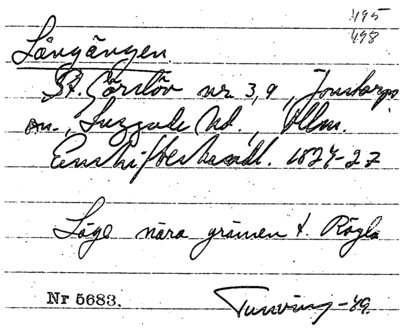 495
498
Långängen.
St. Görslöv nr 3,9, Jonstorps
sn., Luggude hd., Mlm.
Enskifteshandl. 1827-27
Låge nära gränsen t. Rögla
Nr 5683.
Tunving -49.